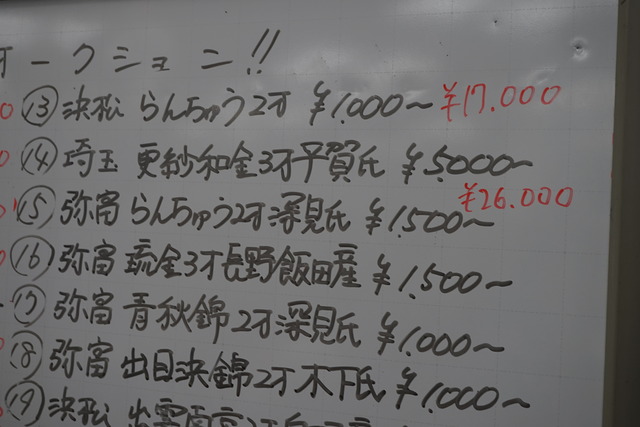 オークション!!
⑬ 浜松 らんちゅう2才 ¥1.000～ ¥17.000
⑭ 埼玉 更紗和金3才平賀氏 ¥5.000～
⑮ 弥富 らんちゅう2才深見氏 ¥1.500～ ¥26.000
⑯ 弥富 琉金3才長野飯田産 ¥1,500～
⑰ 弥富 青秋錦2才深見氏 ¥1.000～
⑱ 弥富 出目浜錦2才木下氏 ¥1.000～
⑲ 浜松 出雲南京2才